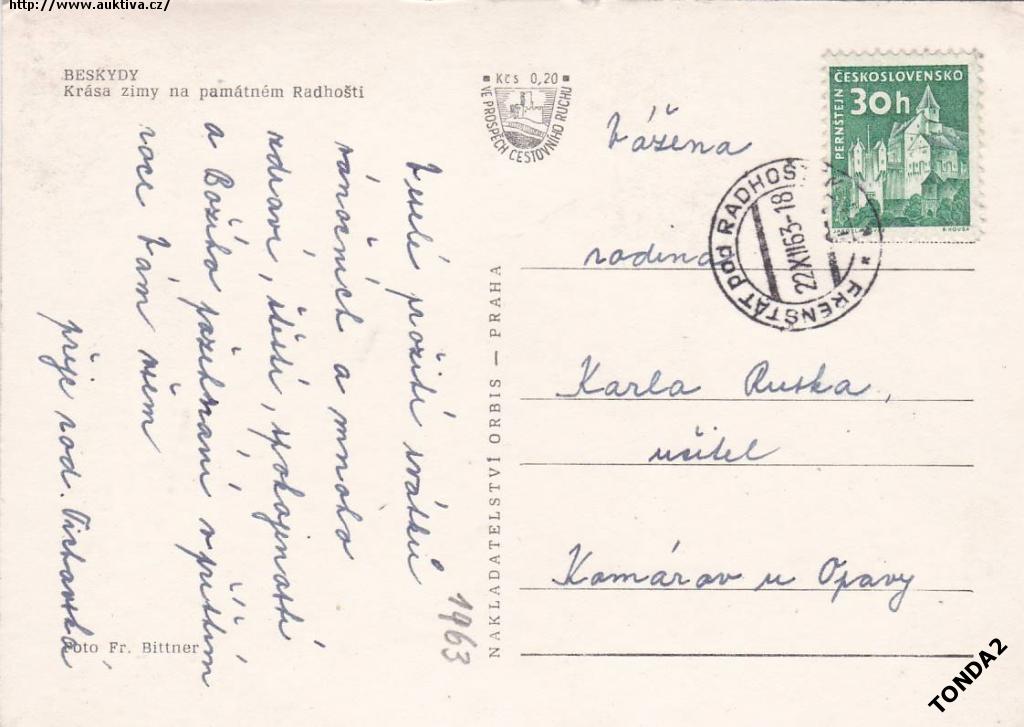 http://www.auktiva.cz/
BESKYDY
Krása zimy na památném Radhošti
Kčs 0,20
VE PROSPĚCH CESTOVNÍHO RUCHU
ČESKOSLOVENSKO
PERNŠTEJN
30h
FRENŠTÁT POD RADHOŠ
22.XII63-18
Veselé prožití svátků
vánočních a mnoho
zdraví, štěstí, spokojenosti
a Božího požehnání v příštím
roce Vám všem
přeje rod.
1963
NAKLADATELSTVÍ ORBIS — PRAHA
Foto Fr. Bittner
Vážena
rodina
Karla Ruska,
učitel
Komárov u Opavy
TONDA2